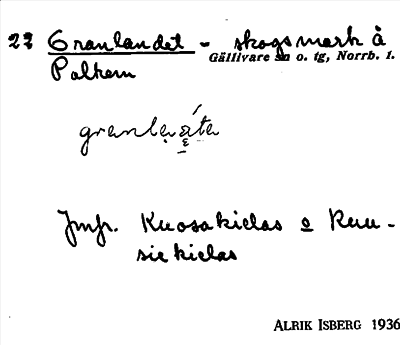 22 Granlandet - skogsmark å
Gällivare sn o. tg, Norrb. l.
Palkem
granlaǹ́ta
Jmfr. Kuosakielas o Kuu-
siekielas
ALRIK ISBERG 1936